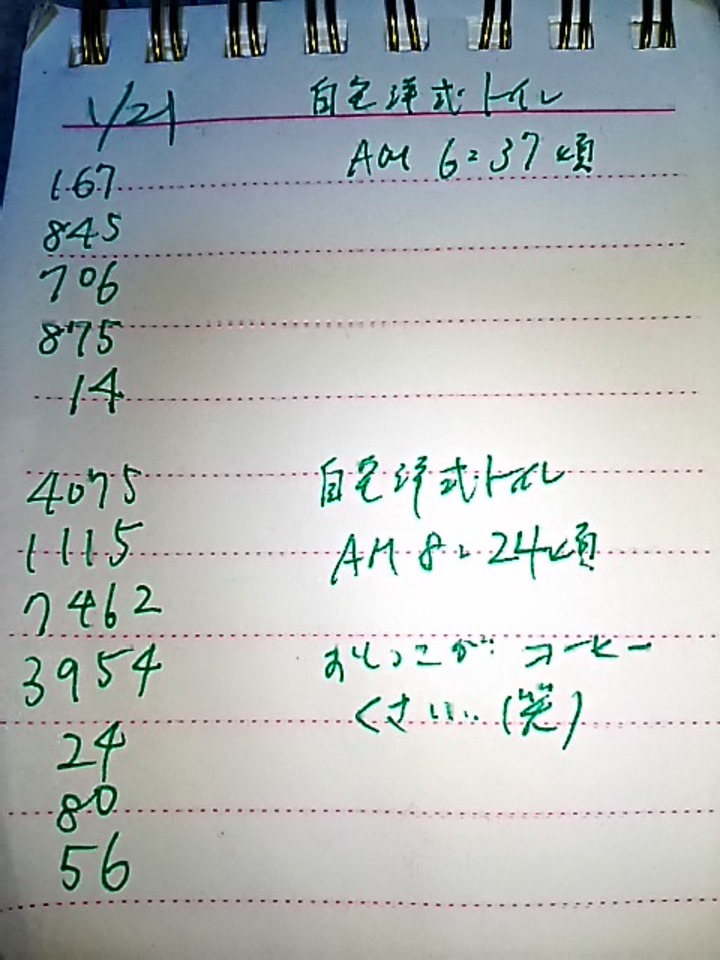 1/21 自宅洋式トイレ
AM 6:37頃
167
845
706
875
14
4075 自宅洋式トイレ
1115 AM 8:24頃
7462
3954 おしっこが コーヒー
くさい… (笑)
24
80
56